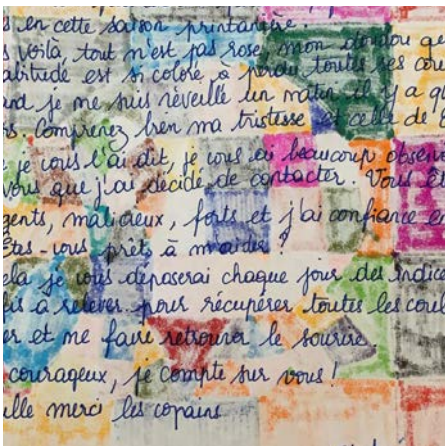 s en cette saison printanière.
s voilà, tout n'est pas rose, mon doudou qe
abitude est si coloré, a perdu toutes ses cou
and je me suis réveillé un matin il y a q
rs. Comprenez bien ma tristesse et celle de
e je vous l'ai dit, je vous ai beaucoup obser
vous que j'ai décidé de contacter. Vous ê
gents, malicieux, forts et j'ai confiance e
Êtes-vous prêts à m'aider ?
ela je vous déposerai chaque jour des indice
fis à relever pour récupérer toutes les coul
er et me faire retrouver le sourire.
courageux, je compte sur vous !
ille merci les copains